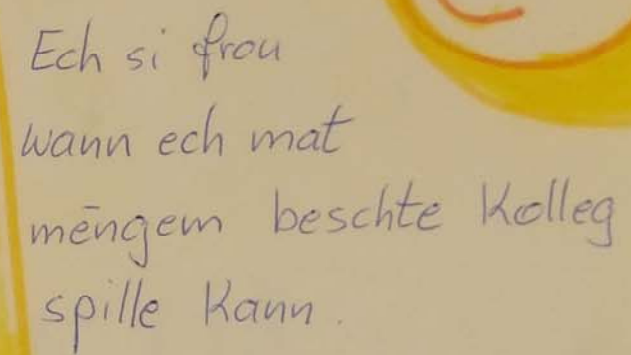 Ech si frou
wann ech mat
mēngem beschte Kolleg
spille kann.